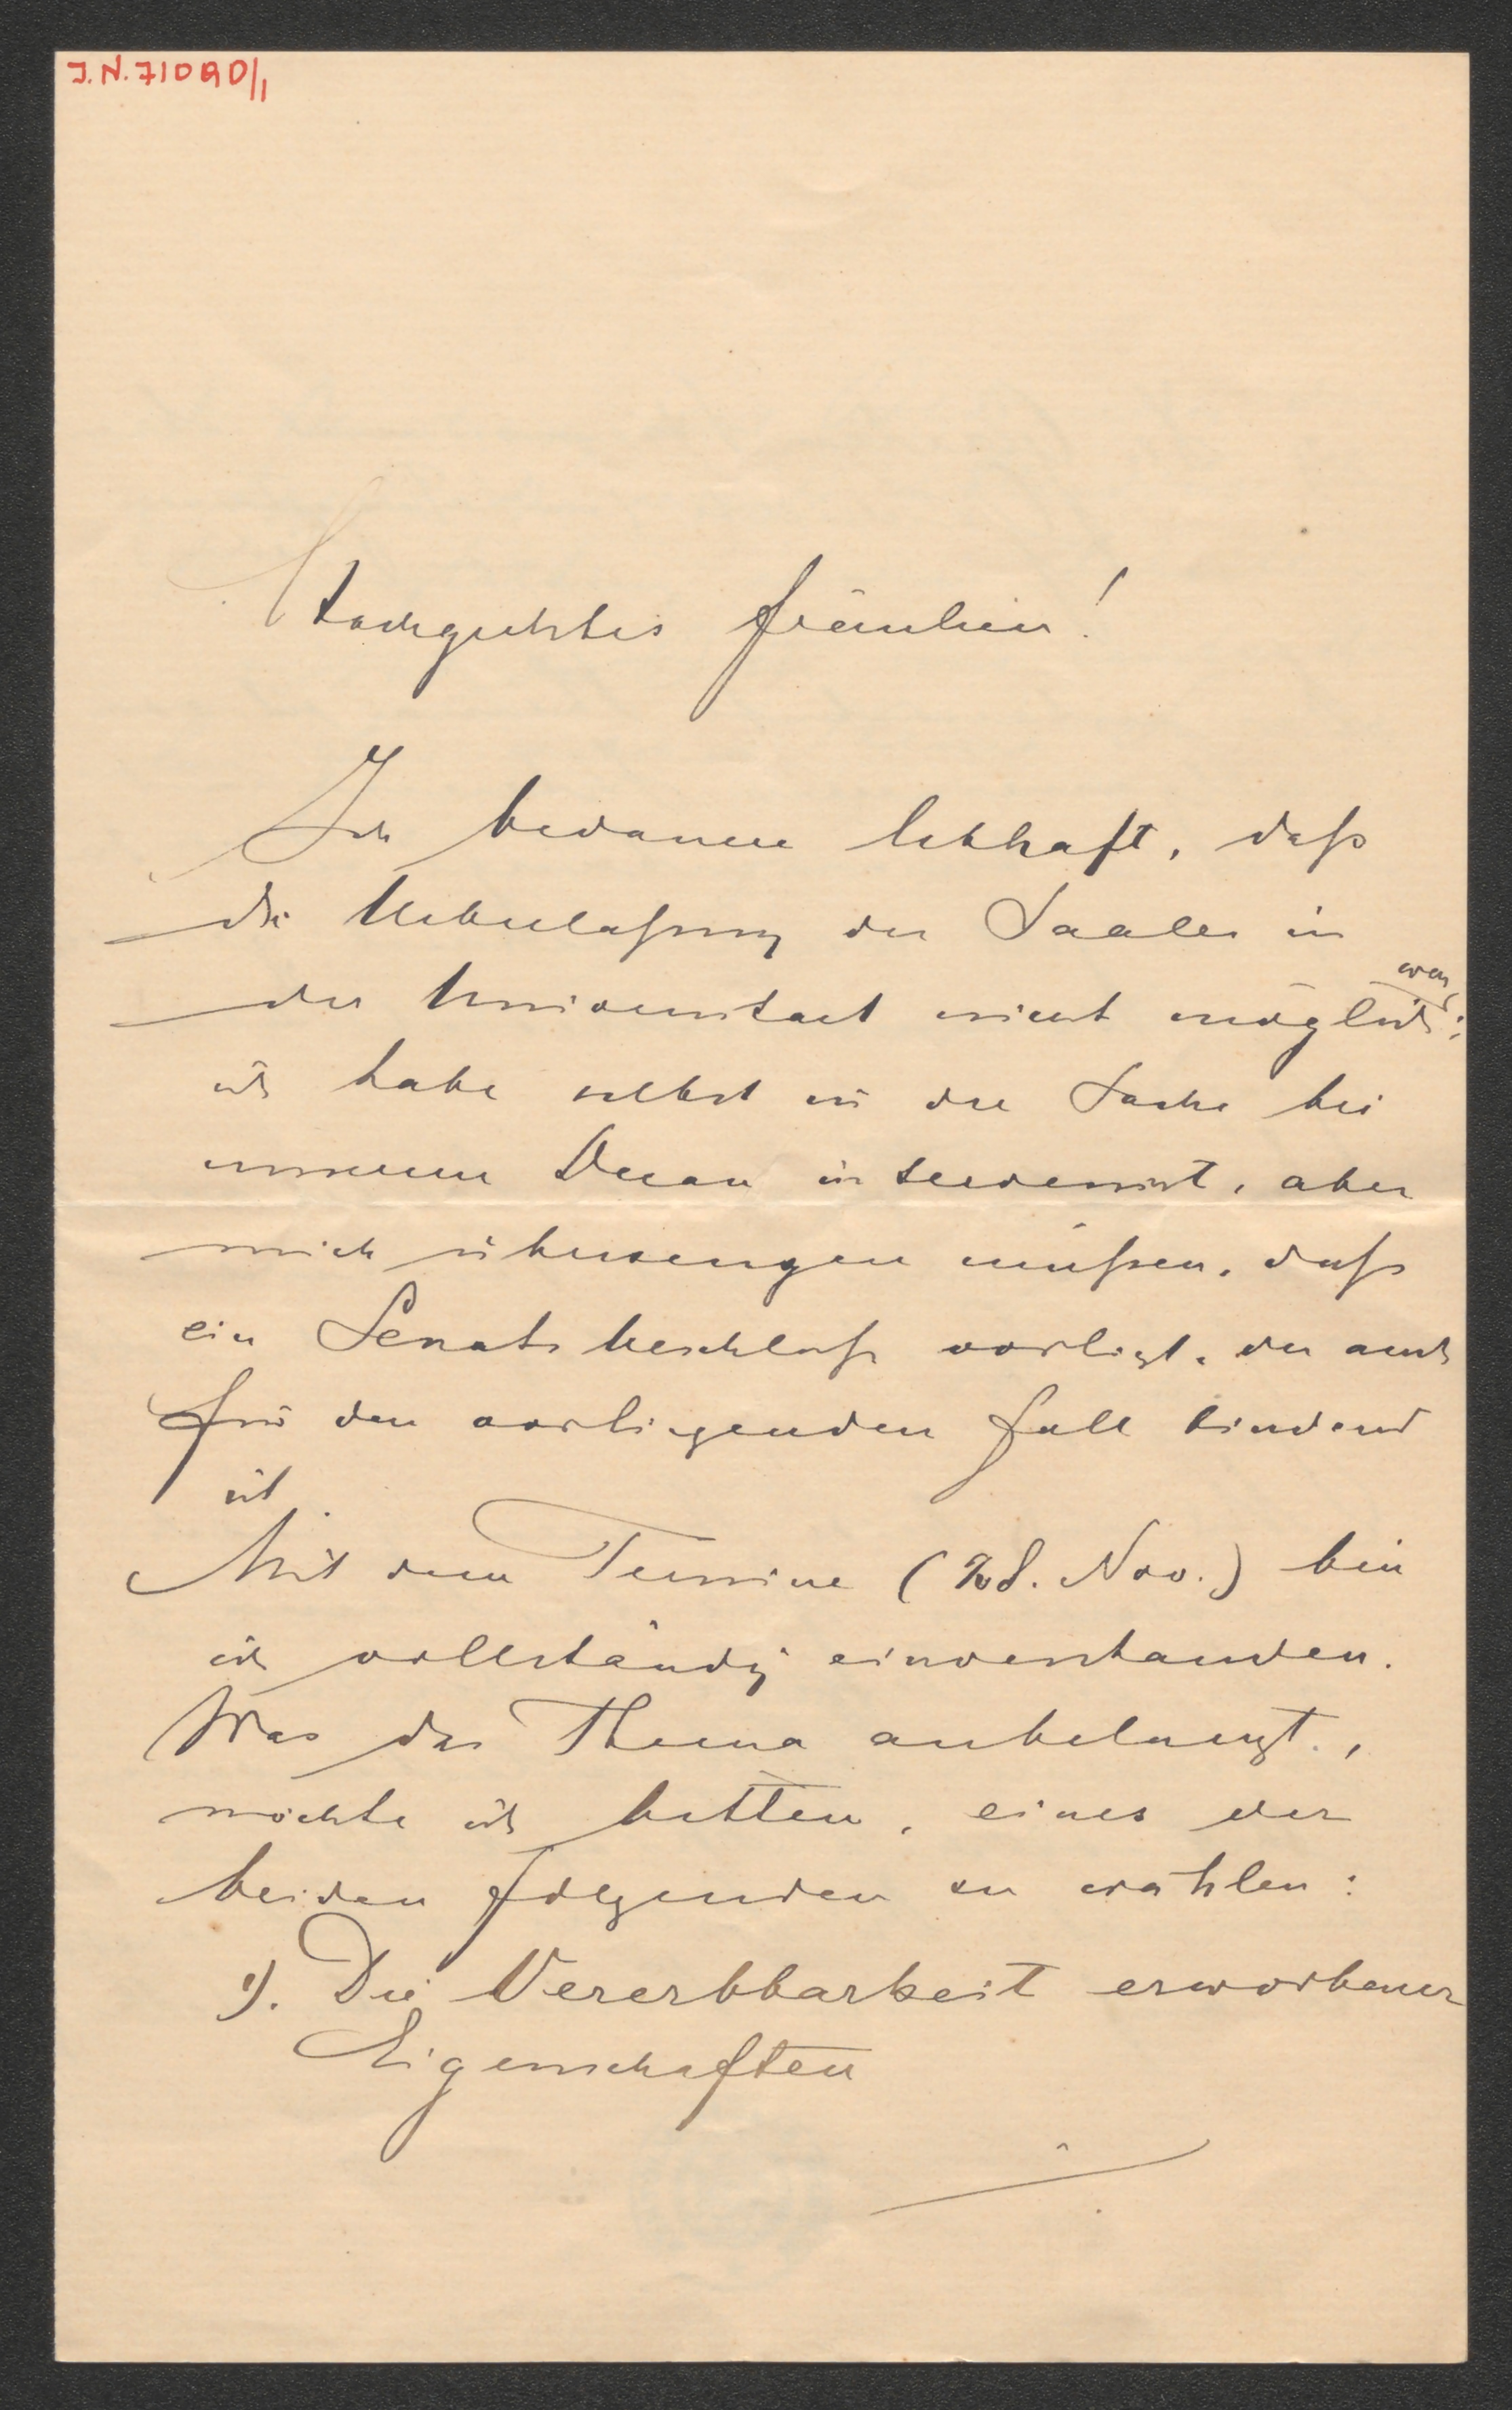 J.N. 71090/1
Hochgeehrtes Fräulein!
Ich bedauere lebhaft, daß
die Ueberlaßung des Saales in
der Universitaet nicht möglich war;
ich habe selbst in der Sache bei
unserem Decan interveniert, aber
mich überzeugen müßen, daß
ein Senatsbeschluß vorliegt, der auch
für den vorliegenden Fall bindend
ist.
Mit dem Termine (28. Nov.) bin
ich vollständig einverstanden.
Was das Thema anbelangt,
möchte ich bitten, eines der
beiden folgenden zu wählen:
1). Die Vererbbarkeit erworbener
Eigenschaften